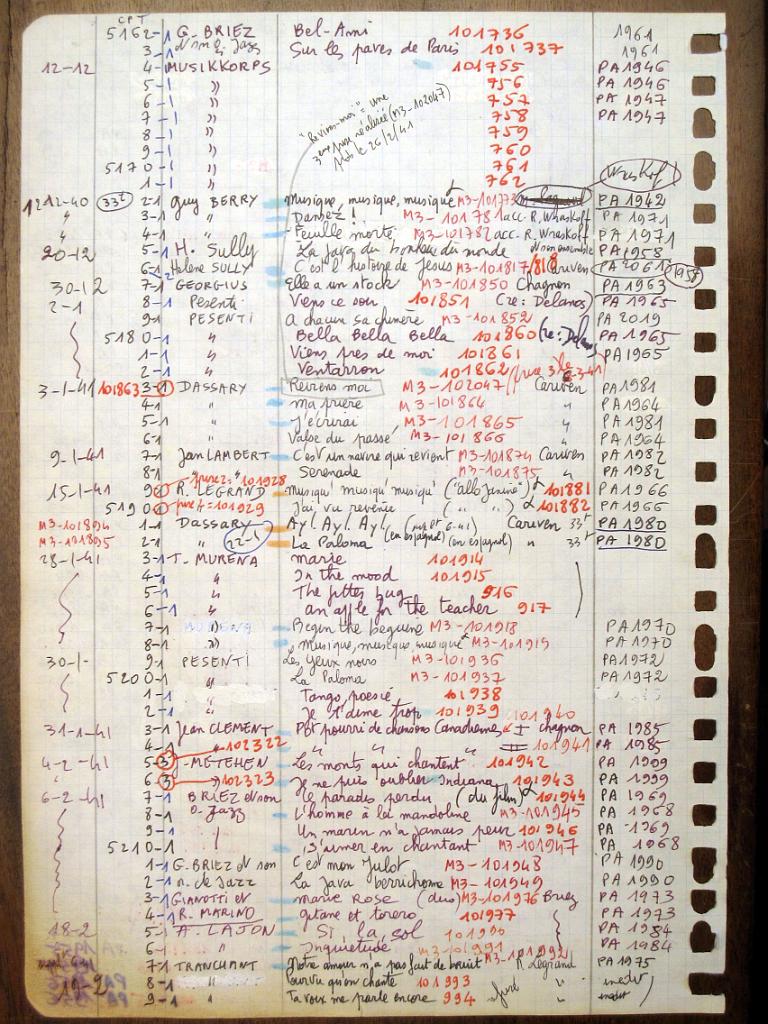 CPT
5162-1 G. BRIEZ Bel-Ami 101736 1961
3-1 et son Jazz Sur les pavés de Paris 101737 1961
12-12 4-1 MUSIKKORPS 101755 PA 1946
5-1 " 756 PA 1946
6-1 " 757 PA 1947
7-1 " 758 PA 1947
8-1 " 759
9-1 " 760
5170-1 " 761
1-1 " 762
"Reviens-moi" = une
3eme prise réalisée (M3-102047)
le 26/2/41
Wraskoff
12-12-40 33t 2-1 Guy BERRY Musique, musique, musique PA 1942
" 3-1 " Dansez! M3-101781 acc. R. Wraskoff PA 1971
" 4-1 " Feuille morte M3-101782 acc. R. Wraskoff PA 1971
20-12 5-1 H. Sully La Java du bonheur du monde et son ensemble PA 1958
6-1 Helene SULLY C'est l'histoire de Jesus M3-101817/818 Cariven PA 2061 1958
30-12 7-1 GEORGIUS Elle a un stock M3-101850 Chagnon PA 1963
2-1 8-1 Pesenti Viens ce soir 101851 (re: Delanos) PA 1965
9-1 PESENTI A chacun sa chimère M3-101852 PA 2019
5180-1 " Bella Bella Bella 101860 PA 1965
1-1 " Viens près de moi 101861 PA 1965
2-1 " Ventarron 101862
3-1-41 101863 3-1 DASSARY Reviens moi M3-102047 Cariven PA 1981
4-1 " ma prière M3-101864 " PA 1964
5-1 " J'écrirai M3-101865 PA 1981
6-1 " Valse du passé M3-101866 " PA 1964
9-1-41 7-1 Jean LAMBERT C'est un navire qui revient M3-101874 Cariven PA 1982
8-1 " Serenade M3-101875 " PA 1982
prise 2 = 101928
15-1-41 9 R. LEGRAND Musiqu' musiqu' musiqu' ("allo Janine") 101881 PA 1966
5190 101929 J'ai vu revenir (" ") 101882 PA 1966
M3-101894 1-1 Dassary Ay! Ay! Ay! (en espagnol) Cariven 33t PA 1980
M3-101895 2-1 " 22-1 La Paloma (en espagnol) " 33t PA 1980
28-1-41 3-1 T. MURENA marie 101914
4-1 " In the mood 101915
5-1 " The jitter bug 916
6-1 " an apple for the teacher 917
7-1 MURENA Begin the beguine M3-101918 PA 1970
8-1 " Musique, musique, musique M3-101919 PA 1970
30-1- 9-1 PESENTI Les yeux noirs M3-101936 PA 1972
5200-1 " La Paloma M3-101937 PA 1972
1-1 " Tango poesie 101938
2-1 " Je t'aime trop 101939
31-1-41 3-1 Jean CLEMENT Pot pourri de chansons Canadiennes I 101940 chagnon PA 1985
4-1 102322 " " II 101941 PA 1985
4-2-41 5-3 J-METEHEN Les monts qui chantent 101942 PA 1999
6-3 102323 Je ne puis oublier Indiana 101943 PA 1999
6-2-41 7-1 BRIEZ et son le paradis perdu (du film) 101944 PA 1969
8-1 o. Jazz L'homme à la mandoline M3-101945 PA 1968
9-1 Un marin n'a jamais peur 101946 PA 1969
5210-1 S'aimer en chantant M3-101947 PA 1968
1-1 G. BRIEZ et son C'est mon Julot M3-101948 PA 1990
2-1 o. de Jazz La Java berrichonne M3-101949 PA 1990
3-1 GIANOTTI et marie Rose (duo) M3-101976 Briez PA 1973
4-1 R. MARINO gitane et torero 101977 PA 1973
18-2 5-1 A. LAJON Si, la, sol 101990 PA 1984
6-1 " Inquiétude M3-101991 PA 1984
7-1 TRANCHANT Notre amour n'a pas fait de bruit M3-101992 R. Legrand PA 1975
19-2 8-1 " Pourvu qu'on chante 101993 " inedit
9-1 " Ta voix me parle encore 994 " inedit